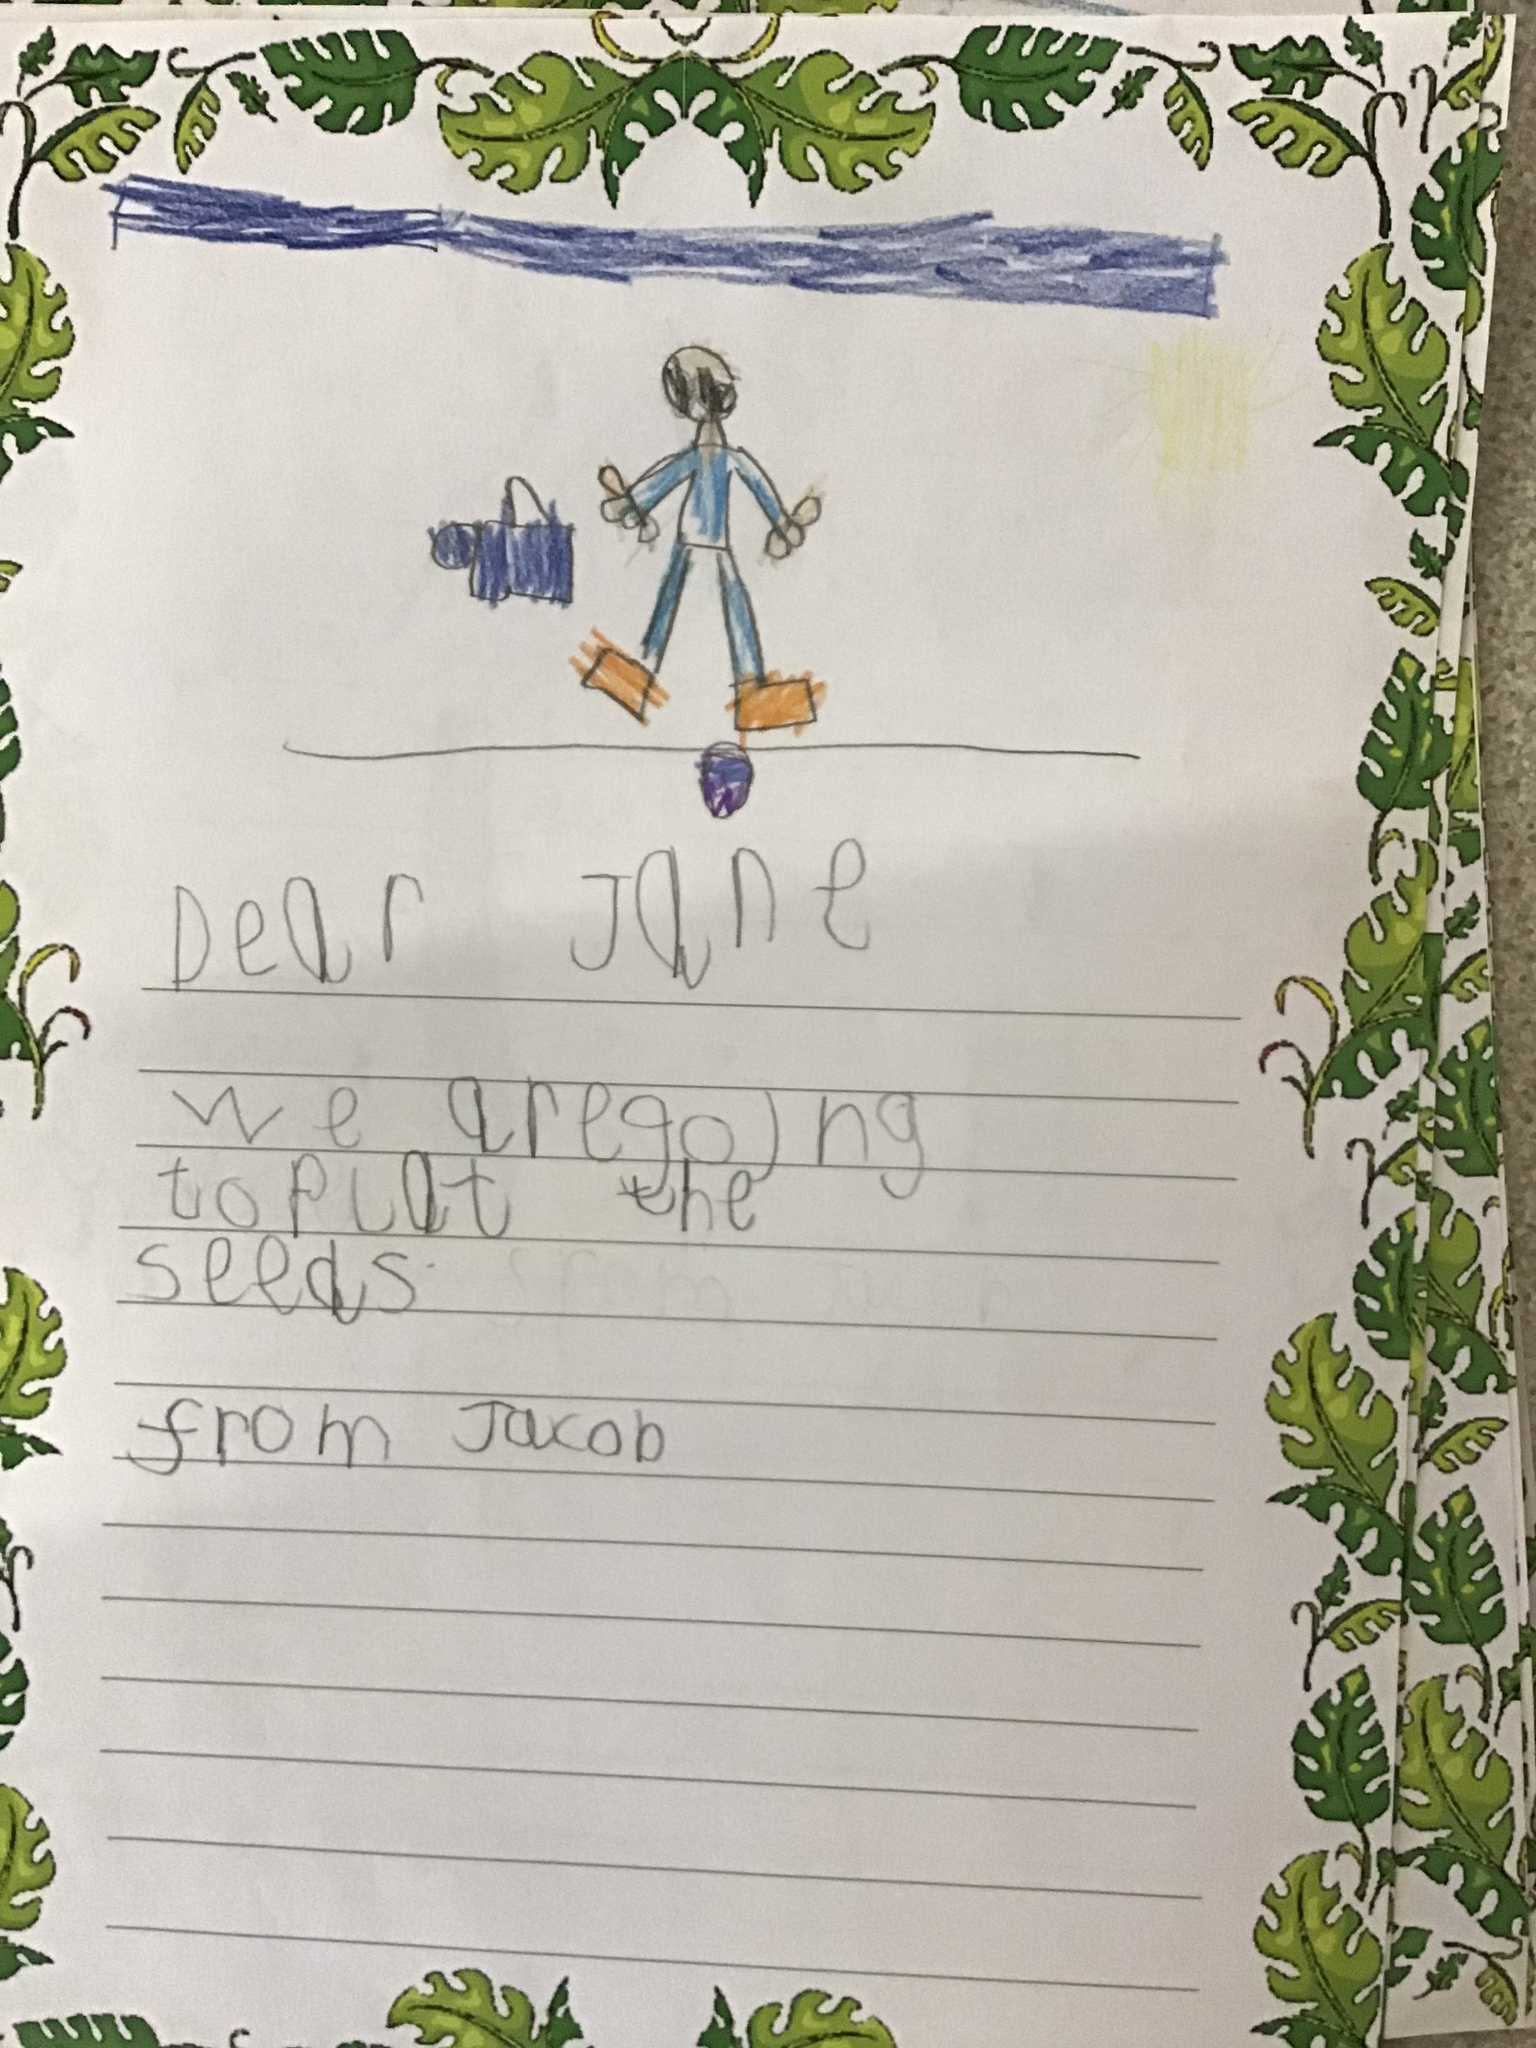 Dear Jane
we aregoing
toPlat the
seeds.
from Jacob